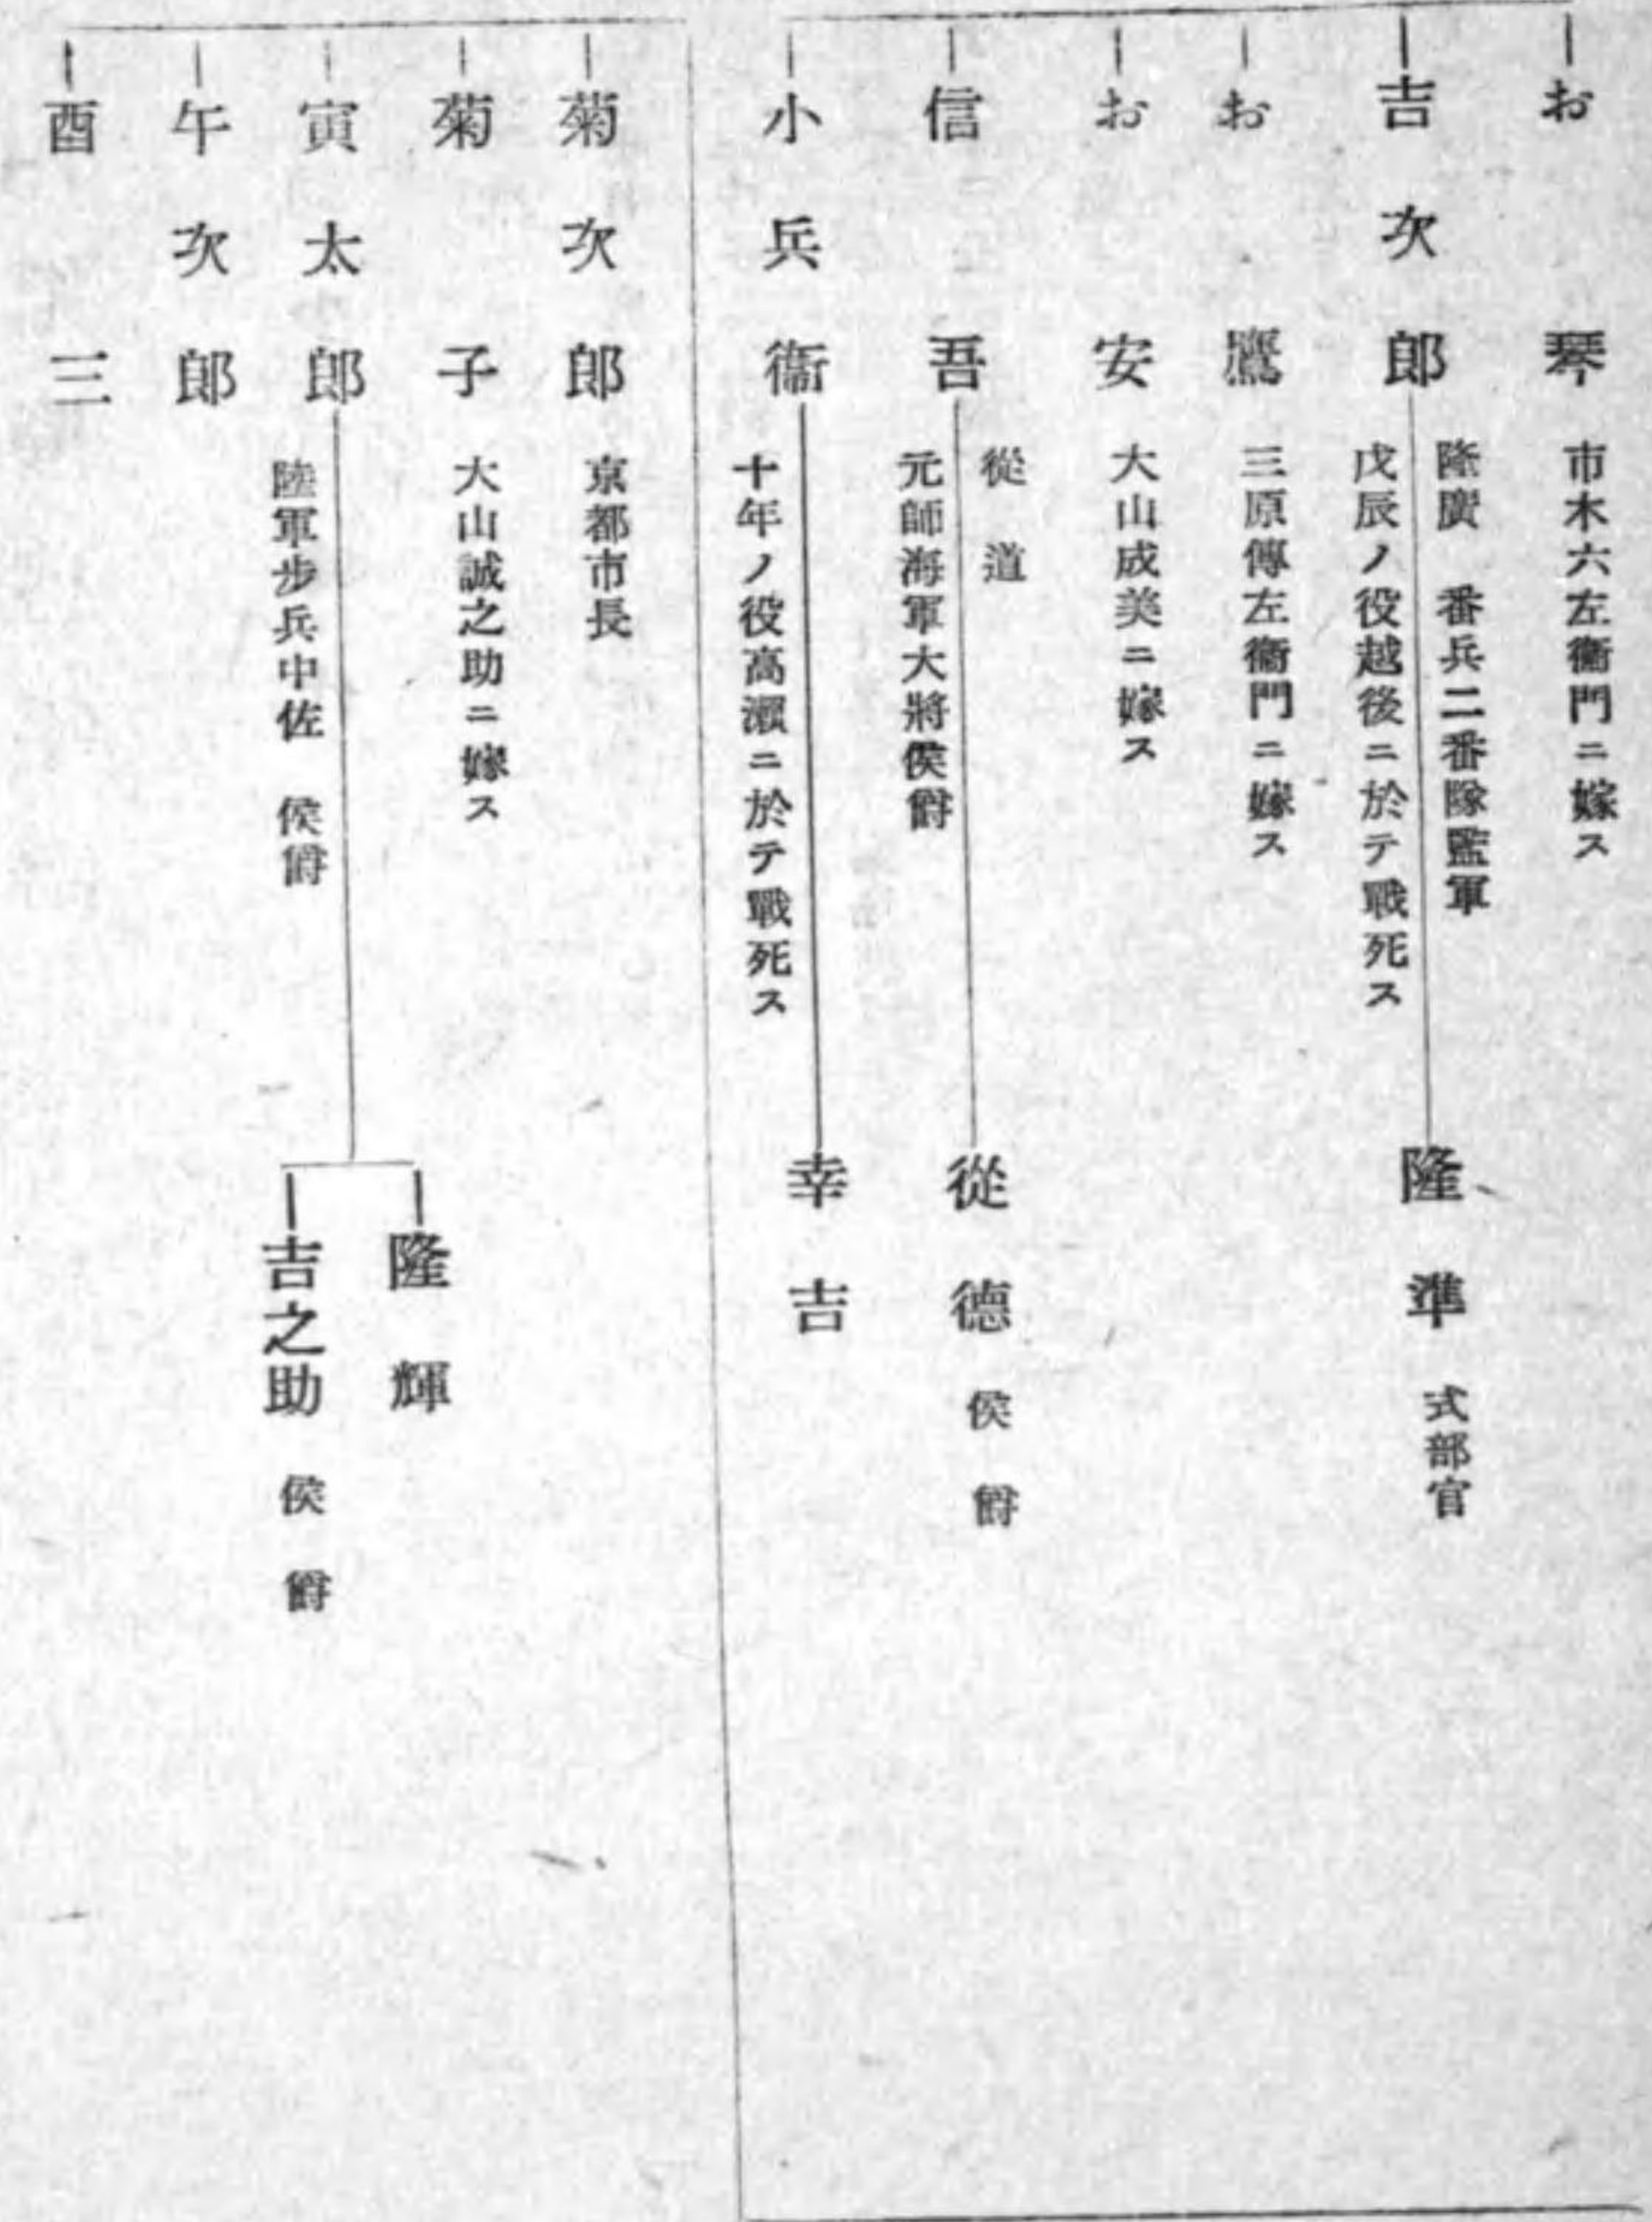 お琴 市木六左衞門ニ嫁ス
吉次郎
隆廣 番兵二番隊監軍
戊辰ノ役越後ニ於テ戰死ス
隆準 式部官
お鷹 三原傳左衞門ニ嫁ス
お安 大山成美ニ嫁ス
信吾
從道
元師海軍大將侯爵
從德 侯爵
小兵衞
十年ノ役高瀨ニ於テ戰死ス
幸吉
菊次郎 京都市長
菊子 大山誠之助ニ嫁ス
寅太郎
陸軍步兵中佐 侯爵
隆輝
吉之助 侯爵
午次郎
酉三